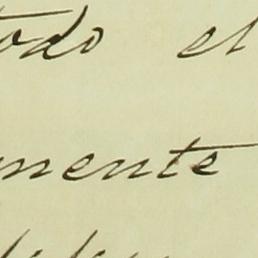 todo el
mente